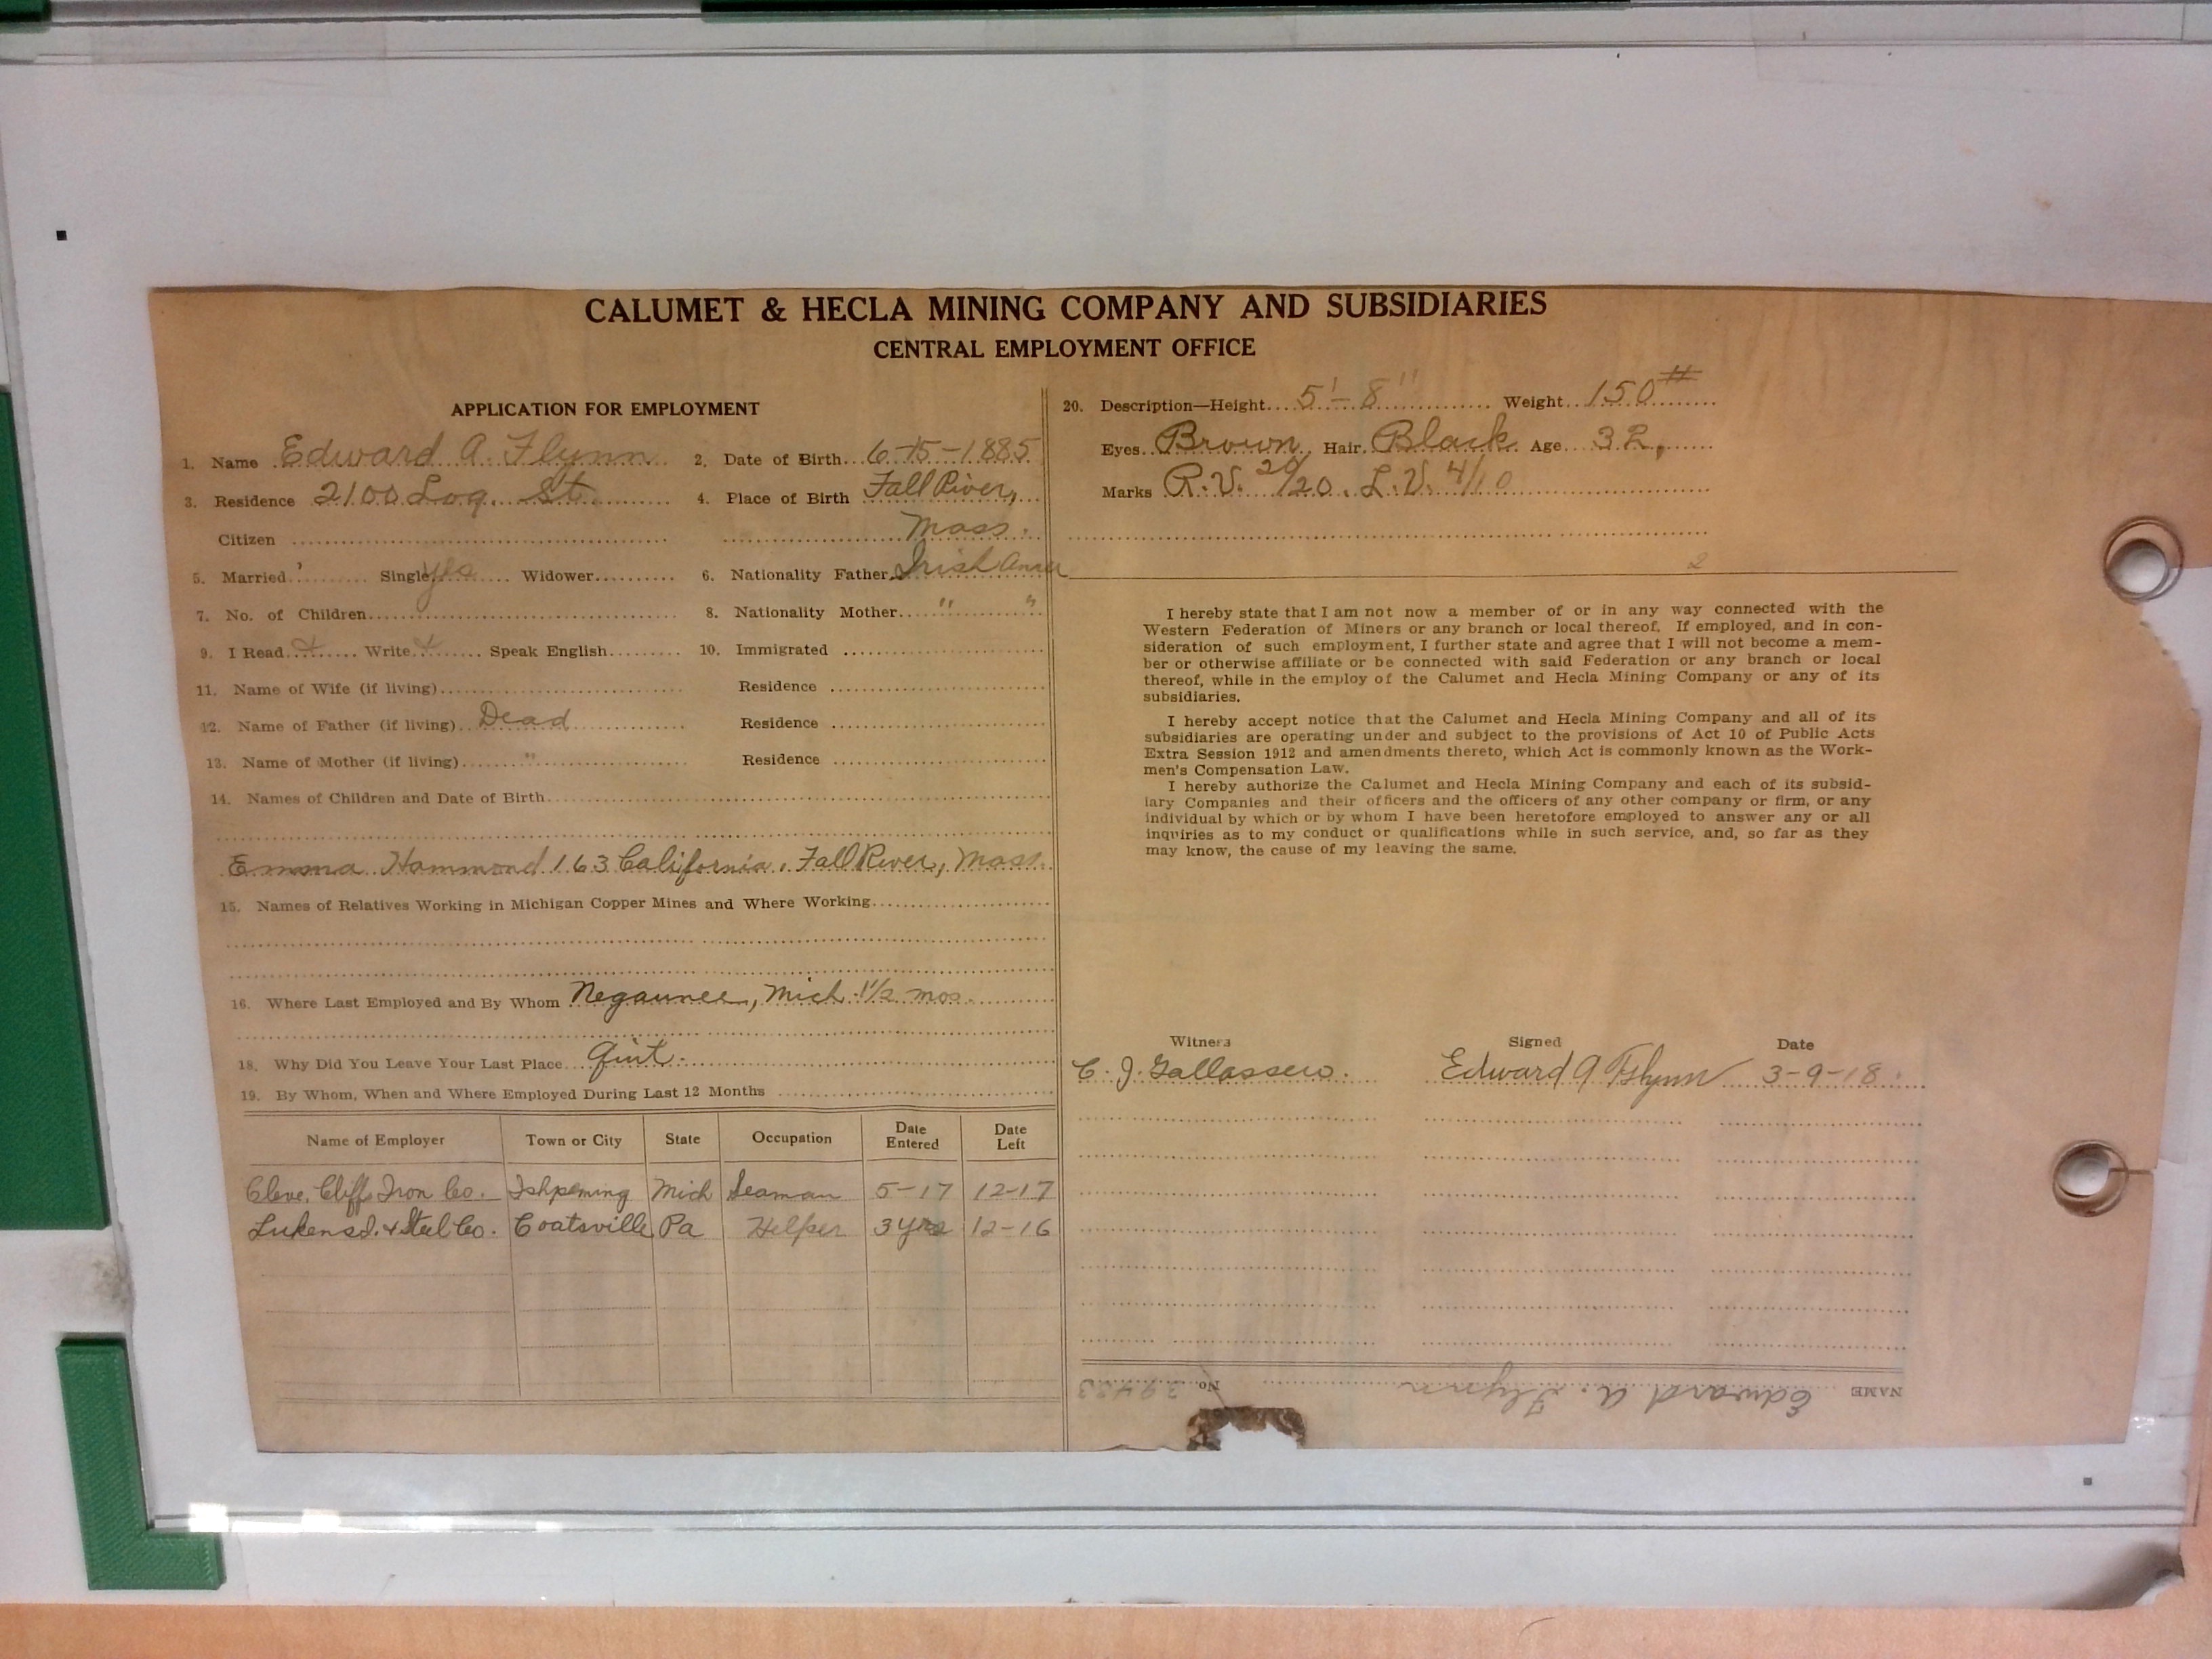 CALUMET & HECLA MINING COMPANY AND SUBSIDIARIES
CENTRAL EMPLOYMENT OFFICE
APPLICATION FOR EMPLOYMENT
1. Name Edward A. Flynn 2. Date of Birth 6-15-1885
3. Residence 2100 Log. St. 4. Place of Birth Fall River,
Citizen Mass.
5. Married Single yes Widower 6. Nationality Father Irish Amer
7. No. of Children 8. Nationality Mother " "
9. I Read x Write x Speak English 10. Immigrated
11. Name of Wife (if living) Residence
12. Name of Father (if living) Dead Residence
13. Name of Mother (if living) " Residence
14. Names of Children and Date of Birth
Emma Hammond 163 California, Fall River, Mass.
15. Names of Relatives Working in Michigan Copper Mines and Where Working
16. Where Last Employed and By Whom Negaunee, Mich. 1 1/2 mos.
18. Why Did You Leave Your Last Place Quit.
19. By Whom, When and Where Employed During Last 12 Months
Name of Employer Town or City State Occupation Date Entered Date Left
Cleve. Cliffs Iron Co. Ishpeming Mich Seaman 5-17 12-17
Lukens I. & Steel Co. Coatsville Pa Helper 3 yrs 12-16
20. Description—Height 5'-8" Weight 150#
Eyes Brown Hair Black Age 32,
Marks R.V. 20/20. L.V. 4/10
2
I hereby state that I am not now a member of or in any way connected with the
Western Federation of Miners or any branch or local thereof. If employed, and in con-
sideration of such employment, I further state and agree that I will not become a mem-
ber or otherwise affiliate or be connected with said Federation or any branch or local
thereof, while in the employ of the Calumet and Hecla Mining Company or any of its
subsidiaries.
I hereby accept notice that the Calumet and Hecla Mining Company and all of its
subsidiaries are operating under and subject to the provisions of Act 10 of Public Acts
Extra Session 1912 and amendments thereto, which Act is commonly known as the Work-
men's Compensation Law.
I hereby authorize the Calumet and Hecla Mining Company and each of its subsid-
iary Companies and their officers and the officers of any other company or firm, or any
individual by which or by whom I have been heretofore employed to answer any or all
inquiries as to my conduct or qualifications while in such service, and, so far as they
may know, the cause of my leaving the same.
Witness Signed Date
C. J. Gallassero. Edward A Flynn 3-9-18.
NAME Edward A. Flynn No. 39433